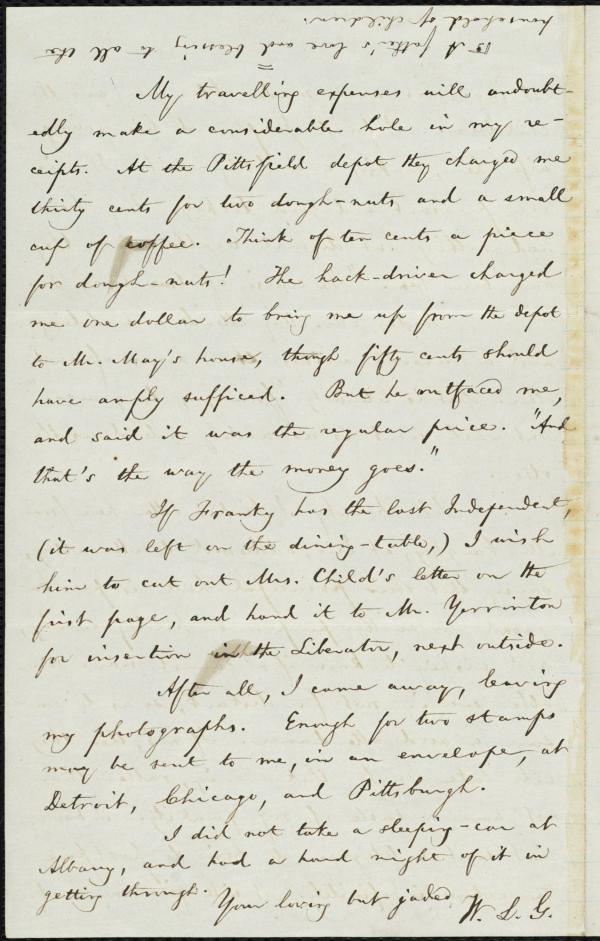 A father's love and blessing to all the
household of children.
My travelling expenses will undoubt-
edly make a considerable hole in my re-
ceipts. At the Pittsfield depot they charged me
thirty cents for two dough-nuts and a small
cup of coffee. Think of ten cents a piece
for dough-nuts! The hack-driver charged
me one dollar to bring me up from the depot
to Mr. May's house, though fifty cents should
have amply sufficed. But he outfaced me,
and said it was the regular price. "And
that's the way the money goes."
If Franky has the last Independent,
(it was left on the dining-table,) I wish
him to cut out Mrs. Child's letter on the
first page, and hand it to Mr. Yerrinton
for insertion in the Liberator, next outside.
After all, I came away, leaving
my photographs. Enough for two stamps
may be sent to me, in an envelope, at
Detroit, Chicago, and Pittsburgh.
I did not take a sleeping-car at
Albany, and had a hard night of it in
getting through.
Your loving but jaded W. L. G.